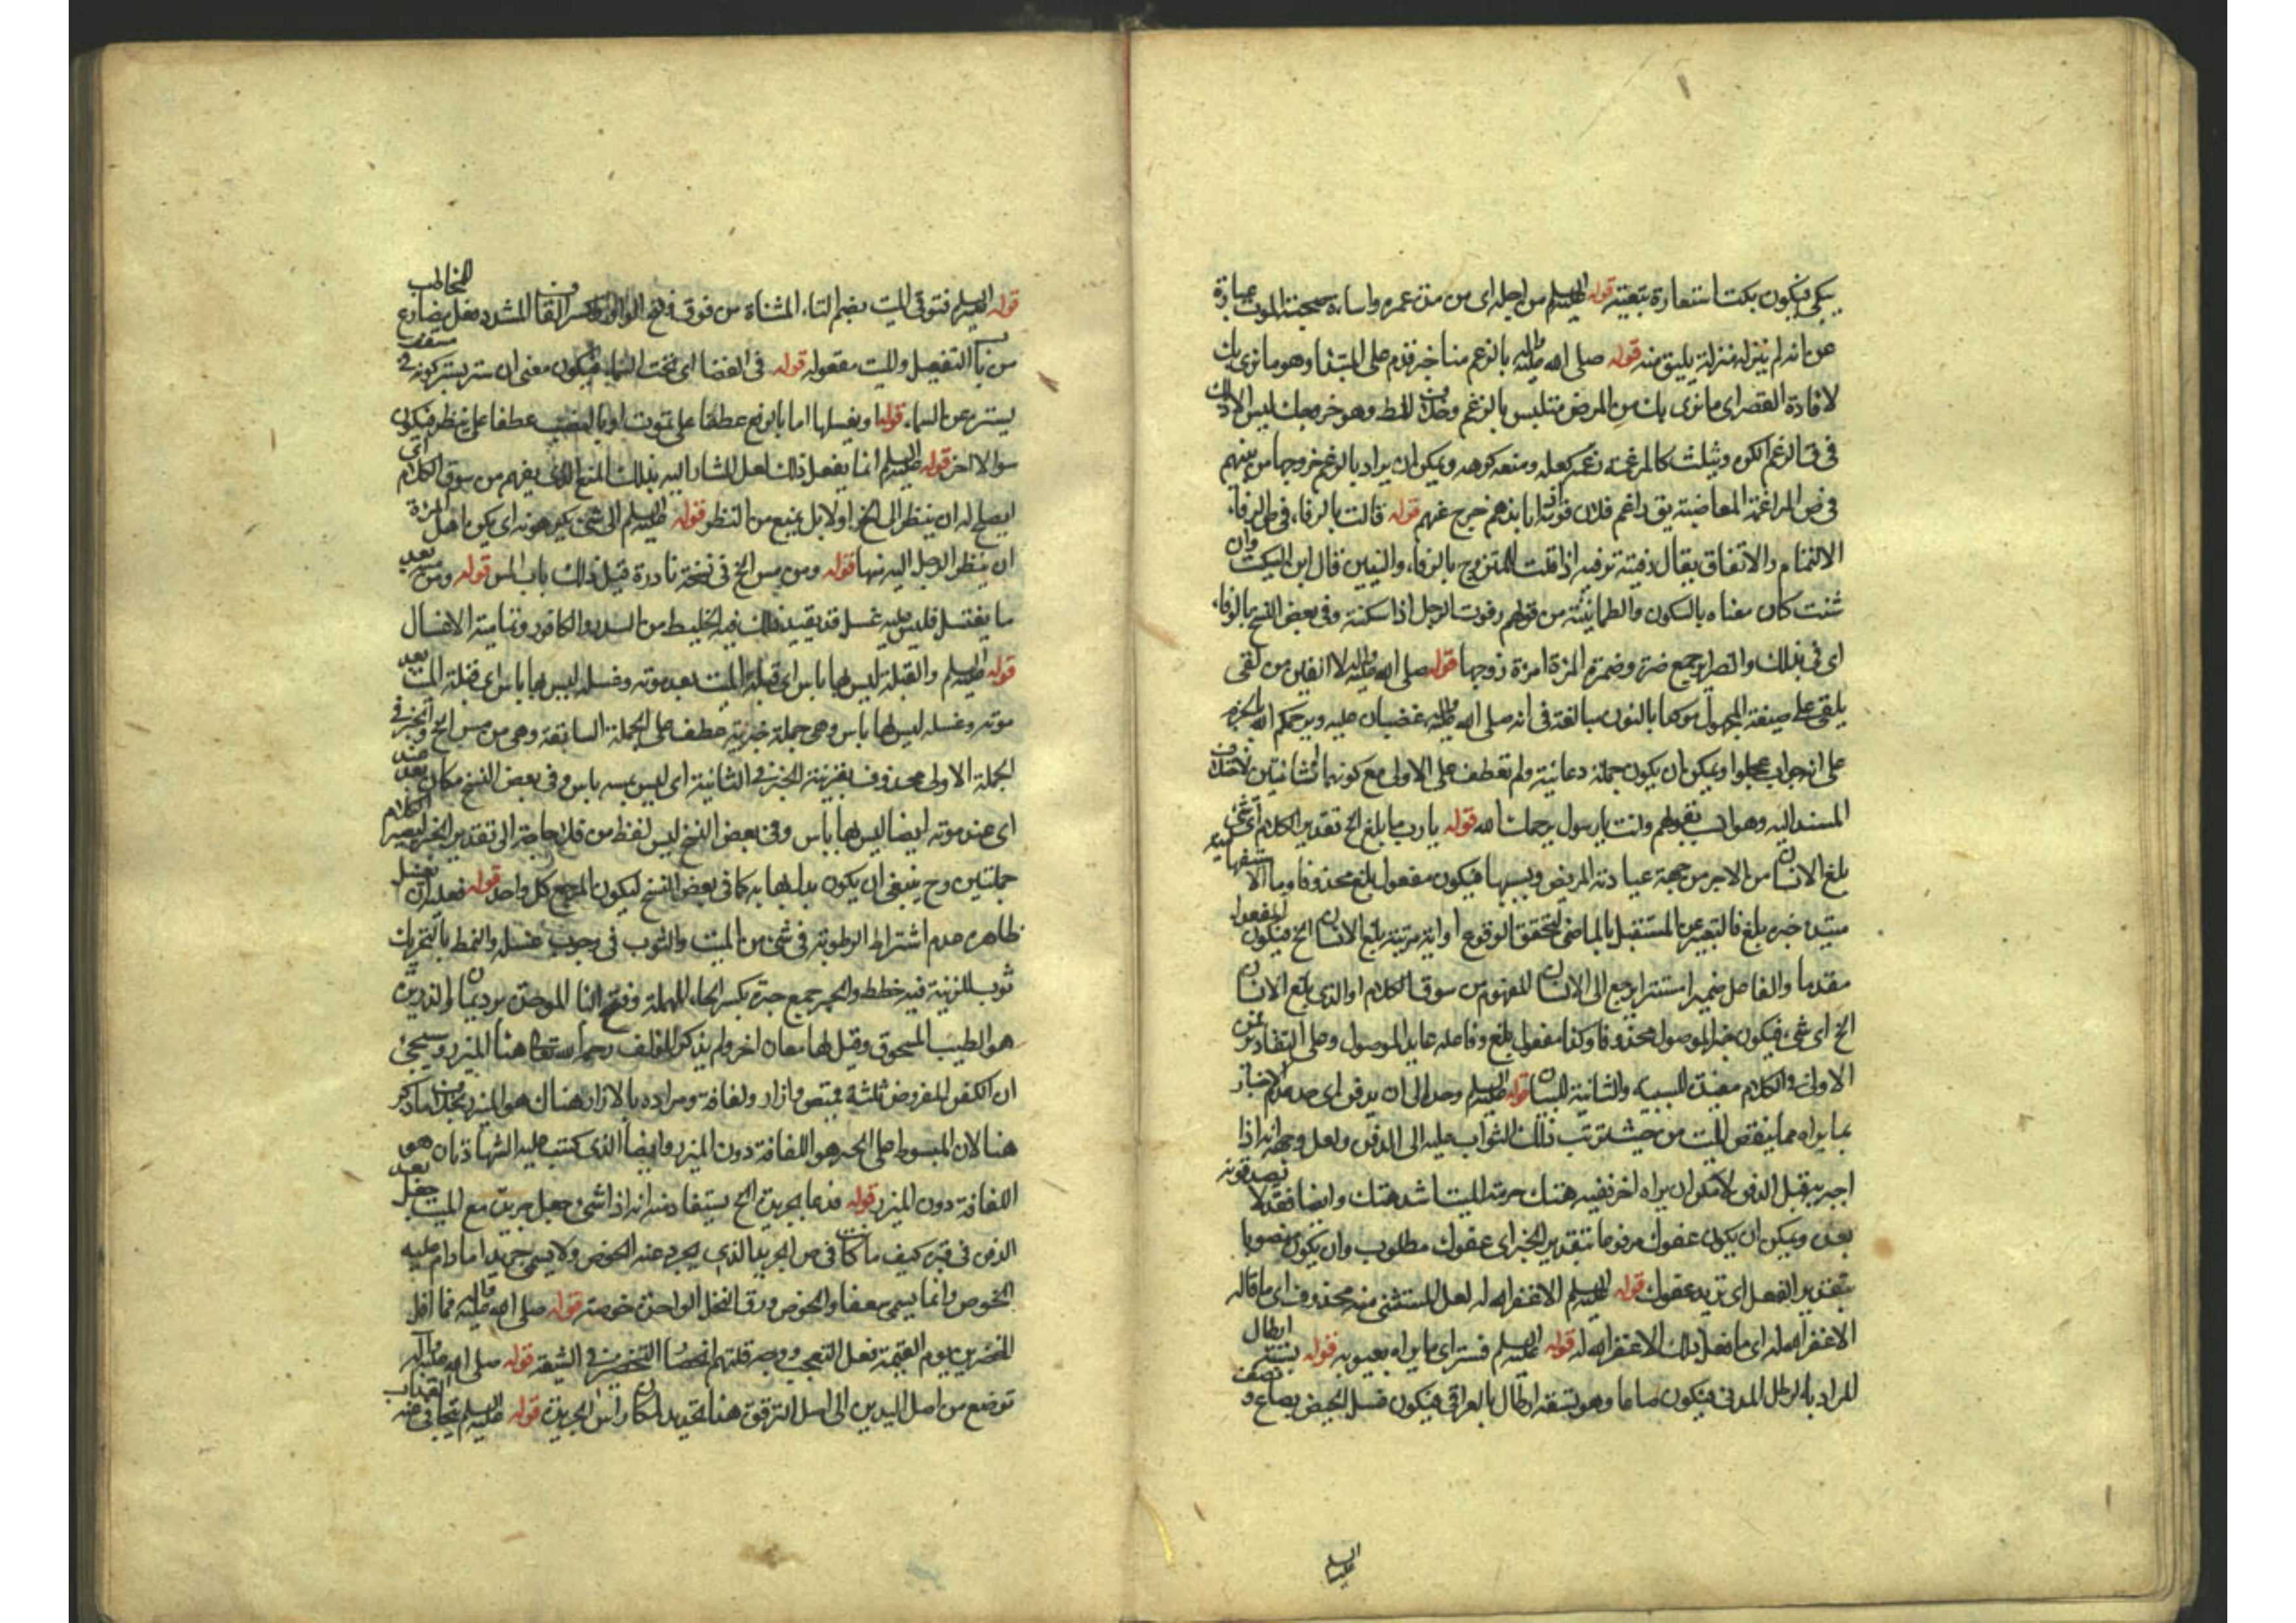 يبكى فيكون بكت استعارة بتعيته قوله عليه السلم من اجله اى من مدة عمره واساءة صحبة الموت عبارة
عن انه لم ينزله منزلة يليق منه قوله صلى الله عليه واله بالزعم منا خبر قدم على المبتدا وهو ما نرى بك
لافادة القصر اى ما نرى بك من المرض متلبس بالرغم وحذف للط وهو خروجك ليس الا ذلك
فى ق الرغم الكره ويثلث كالمرغمة رغمه كعلمه ومنعه كرهه ويمكن ان يراد بالرغم خروجها من بينهم
فى ص المراغمة المغاضبة يق راغم فلان قومه اذا نبذهم وخرج عنهم قوله قالت بالرفاء فى ص الرفاء
الالتئام والاتفاق يقال رفيته ترفية اذا قلت للمتزوج بالرفاء والبنين قال ابن السكيت وان
شئت كان معناه بالسكون والطمانينة من قولهم رفوت الرجل اذا سكنته وفى بعض النسخ بالوفاء
اى فى بذلك والضراير جمع ضرة وضرة المرءة امرءة زوجها قوله صلى الله عليه واله لا القين من لقى
يلقى على صيغة المجهول موكدا بالنون مبالغة فى انه صلى الله عليه واله غضبان عليه ويرحمكم الله بالجزم
على انه جواب عجلوا ويمكن ان يكون جملة دعائية ولم تعطف على الاولى مع كونهما انشائيتين لاختلاف
المسند اليه وهو انسب بقولهم وانت يا رسول يرحمك الله قوله يا رب ما بلغ الخ تقدير الكلام اى شئ
بلغ الانسان من الاجر من جهة عيادته المريض وبسببها فيكون مفعول بلغ محذوفا وما الاستفهامية
مبتدء خبره بلغ فالتعبير عن المستقبل بالماضى لتحقق الوقوع او اية مرتبة بلغ الانسان الخ فيكون المفعول
مقدما والفاعل ضمير استتر يرجع الى الانسان المفهوم من سوق الكلام او الذى بلغ الانسان
الخ اى شئ فيكون خبر الموصول محذوفا وكذا مفعول بلغ وفاعله عايد الموصول وعلى التقادير من
الاولى فى الكلام مفيدة للسببية والثانية للبيان قوله عليه السلم وحد الى ان يدفن اى حد عدم الاخبار
بما يراه مما ينقص الميت من حيث ترتب ذلك الثواب عليه الى الدفن ولعل وجهه انه اذا
اخبر به قبل الدفن لامكن ان يراه اخر ففيه هتك حرمة الميت اشد هتك وايضا فقد لا يصدقونه
بعده ويمكن ان يكون عفوك مرفوعا بتقدير الخبر اى عفوك مطلوب وان يكون منصوبا
بتقدير الفعل اى نريد عفوك قوله عليه السلم الا غفر الله له لعل المستثنى منه محذوف اى ما قاله
الا غفر الله له اى ما فعل ذلك الا غفر الله له قوله عليه السلم فستر اى ما يراه بعيوبه قوله بستة ارطال
المراد بالرطل المدنى فيكون صاعا وهو تسعة ارطال بالعراقى فيكون غسل الحيض بصاع ونصف
عليه السلم
قوله عليه السلم فتوقى الميت بضم التاء المثناة من فوق وفتح الواو وكسر القاف المشدد فعل مضارع للمخاطب
من باب التفعيل والميت مفعوله قوله فى الفضا اى تحت السماء فيكون معنى ان ستر بستر كونه فى سقف
يستره عن السماء قوله او يغسلها اما بالرفع عطفا على تموت او بالنصب عطفا على ينظر فيكون
سوالا اخر قوله عليه السلم انما يفعل ذلك لعل المشار اليه بذلك المنع الذى يفهم من سوق الكلام اى
ايصلح له ان ينظر الى الخ او لا بل يمنع من النظر قوله عليه السلم الى شئ يكرهونه اى يكره اهل المرءة
ان ينظر الرجل اليه منها قوله ومن مس الخ فى نسخة نادرة قبل ذلك باب المس قوله ومن مسه بعد
ما يغتسل فليس عليه غسل قد يقيد ذلك فيه الخليط من السدر والكافور وتمامية الاغسال
قوله عليه السلم والقبلة ليس لها باس اى قبلة الميت بعد موته وغسله ليس بها باس اى قبلة الميت بعد
موته وغسله ليس لها باس وهى جملة خبرية عطف على الجملة السابقة وهى من مس الخ والخبر فى
الجملة الاولى محذوف بقرينة الخبر فى الثانية اى ليس بمسه باس وفى بعض النسخ مكان بعد عند
اى عند موته ايضا ليس لها باس وفى بعض النسخ ليس لفظ من فلا حاجة الى تقدير الخبر ليصير الكلام
جملتين وح ينبغى ان يكون بدل بها به كما فى بعض النسخ ليكون المرجع كل واحد قوله فعليه ان يغسل
ظاهره عدم اشتراط الرطوبة فى شئ من الميت والثوب فى وجوب غسله والنمط بالتحريك
ثوب للزينة فيه خطط والحبر جمع حبرة بكسر الحاء المهملة وفتح الباء الموحدة برد يمان والذريرة
هو الطيب المسحوق وقيل لها معان اخر ولم يذكر المؤلف رحمه الله تعالى هنا المئزر وسيجئ
ان الكفن المفروض ثلثة قميص وازار ولفافة ومراده بالازار هناك هو المئزر بخلاف ما ذكر
هنا لان المبسوط على الحبر هو اللفافة دون المئزر وايضا الذى كتب عليه الشهادتان هو
اللفافة دون المئزر قوله فدعا بجريدة الخ يستفاد منه انه اذا شق وجعل جريدة مع الميت بعد جعل
الدفن فى قبره كيف ما كانت كافى ص الجريد الذى يجرد عنه الخوص ولا يسمى جريدا ما دام عليه
الخوص وانما يسمى سعفا والخوص ورق النخل الواحدة خوصة قوله صلى الله عليه واله فما اقل
المخضرين يوم القيمة فعل التعجب ووجه قلتهم اختصاص التخضير فى الشيعة قوله صلى الله عليه واله
توضع من اصل اليدين الى اصل الترقوة هذا تحديد لمكان راس الجريدة قوله عليه السلم يتجافى عنه العذاب